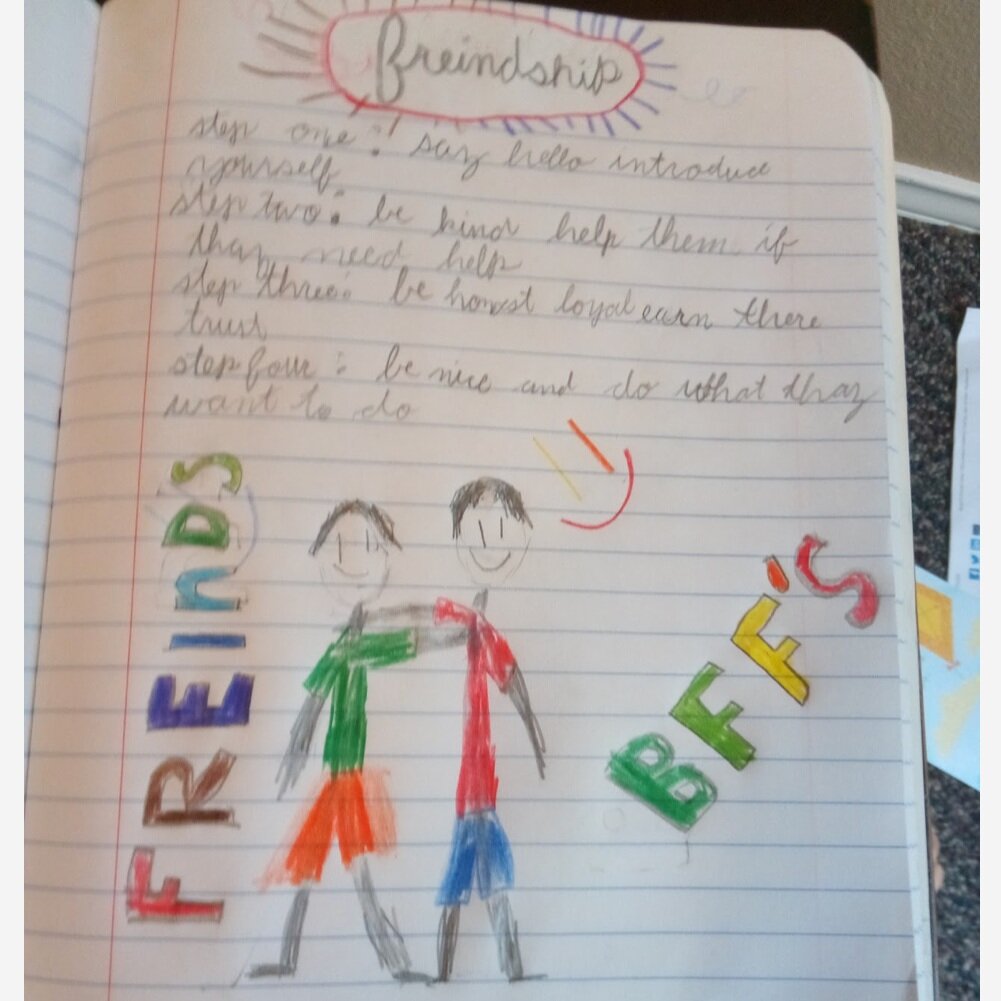 Freindship
step one : say hello introduce
yourself
step two : be kind help them if
thay need help
step three : be honest loyal earn there
trust
step four : be nice and do what thay
want to do
FREINDS
BFF'S